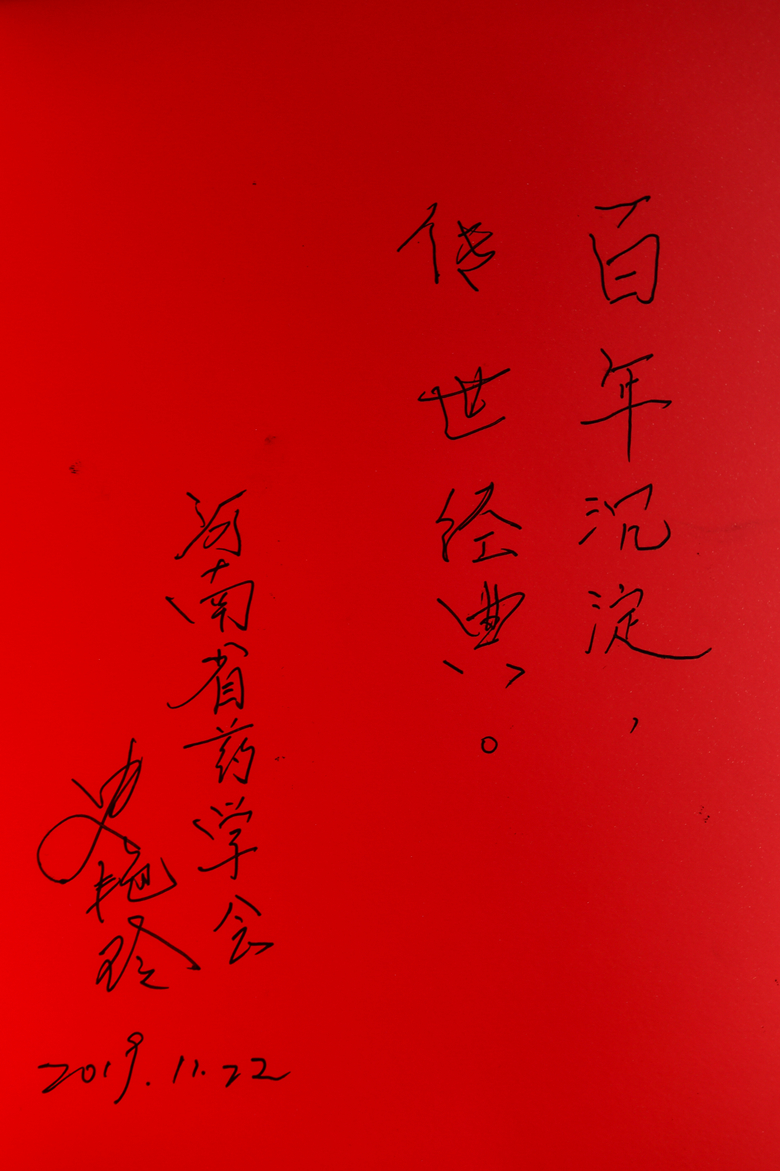 百年沉淀，
传世经典。
河南省药学会
史艳玲
2019.11.22